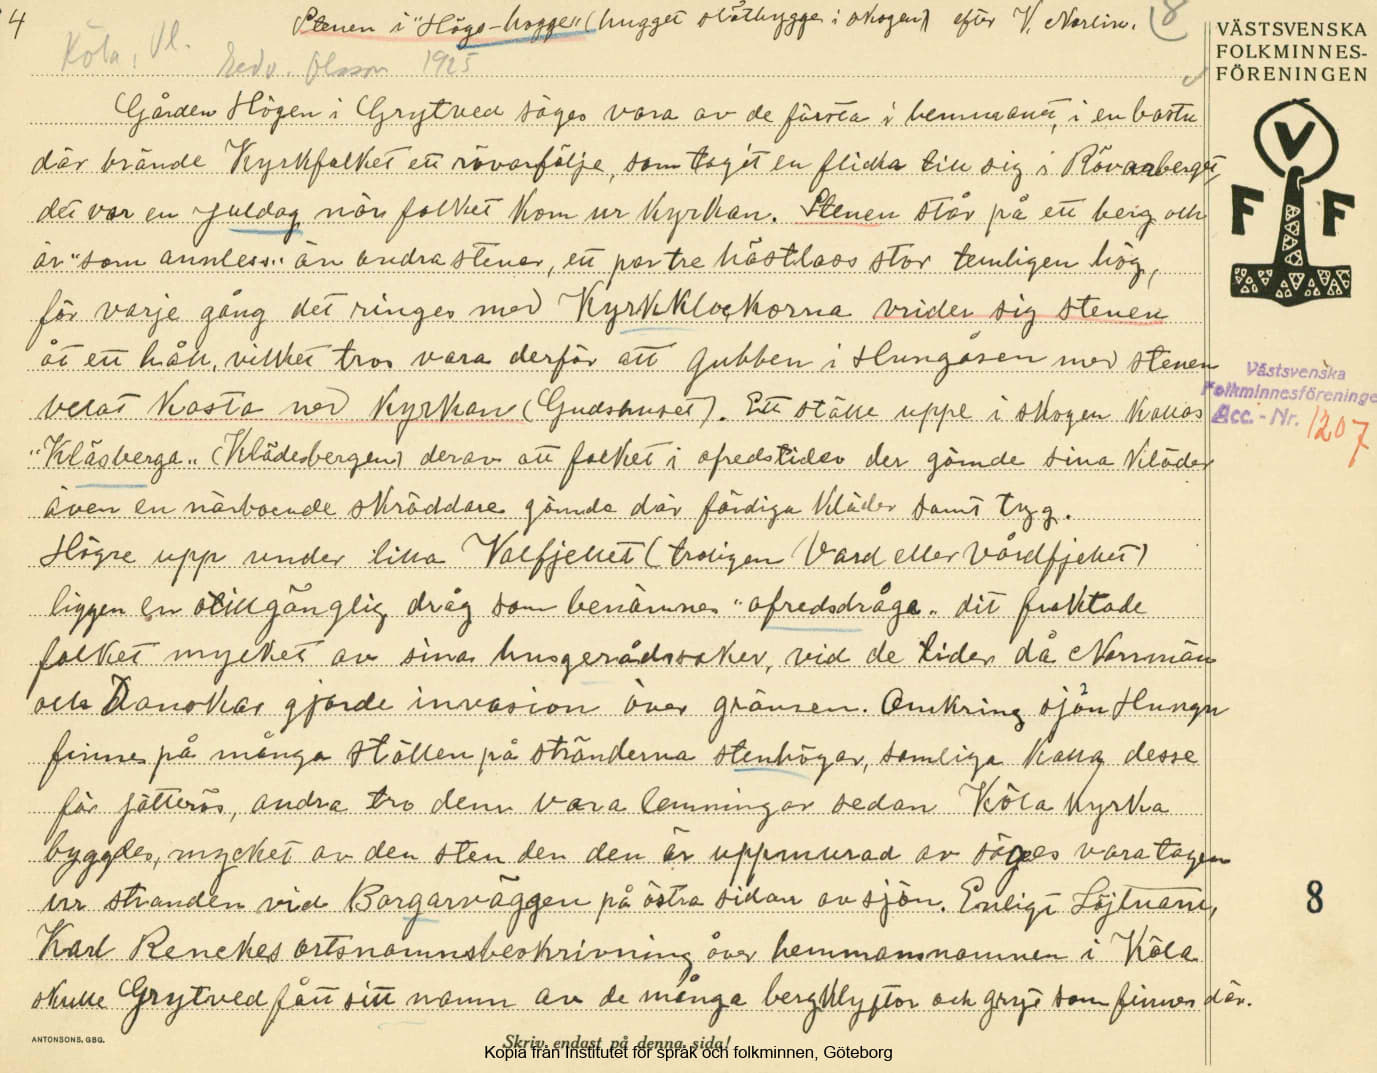 4
Stenen i "Högs-hogge" (hugget slåtbygge i skogen) efter V. Norlin.
8
Köla, Vl.
Edv. Olsson 1925
VÄSTSVENSKA
FOLKMINNES-
FÖRENINGEN
V
F F
Gården Högen i Grytved säges vara av de första i hemmanet, i en bastu
där brände Kyrkfolket ett rövarfölje, som tagit en flicka till sig i Rövareberget,
det var en Juldag när folket kom ur kyrkan. Stenen står på ett berg och
är "som annless" än andra stenar, ett par tre hästlass stor temligen hög,
för varje gång det ringes med Kyrkklockorna vrider sig stenen
åt ett håll, vilket tros vara derför att gubben i Hungåsen med stenen
velat kasta ned kyrkan (Gudshuset). Ett ställe uppe i skogen kallas
"Kläsberga" (Klädesbergen) derav att folket i ofredstider der gömde sina kläder
även en närboende skräddare gömde där färdiga kläder samt tyg.
Högre upp under lilla Valfjellet (troligen Vard eller Vårdfjellet)
ligger en otillgänglig dråg som benämnes "ofredsdråga" dit fraktade
folket mycket av sina husgerådssaker, vid de tider då Norrmän
och Danskar gjorde invasion över gränsen. Omkring sjön Hungn
finnes på många ställen på stränderna stenhögar, somliga kalla desse
för jätterös, andra tro dem vara lemningar sedan Köla kyrka
byggdes, mycket av den sten den den är uppmurad av säges vara tagen
ur stranden vid Borgarväggen på östra sidan av sjön. Enligt Löjtnant,
Karl Renckes ortsnamnsbeskrivning över hemmansnamnen i Köla
skulle Grytved fått sitt namn av de många bergklyftor och gryt som finnes där.
Västsvenska
Folkminnesföreninge
Acc. - Nr. 1207
8
ANTONSONS, GBG.
Skriv endast på denna sida!
Kopia från Institutet för språk och folkminnen, Göteborg